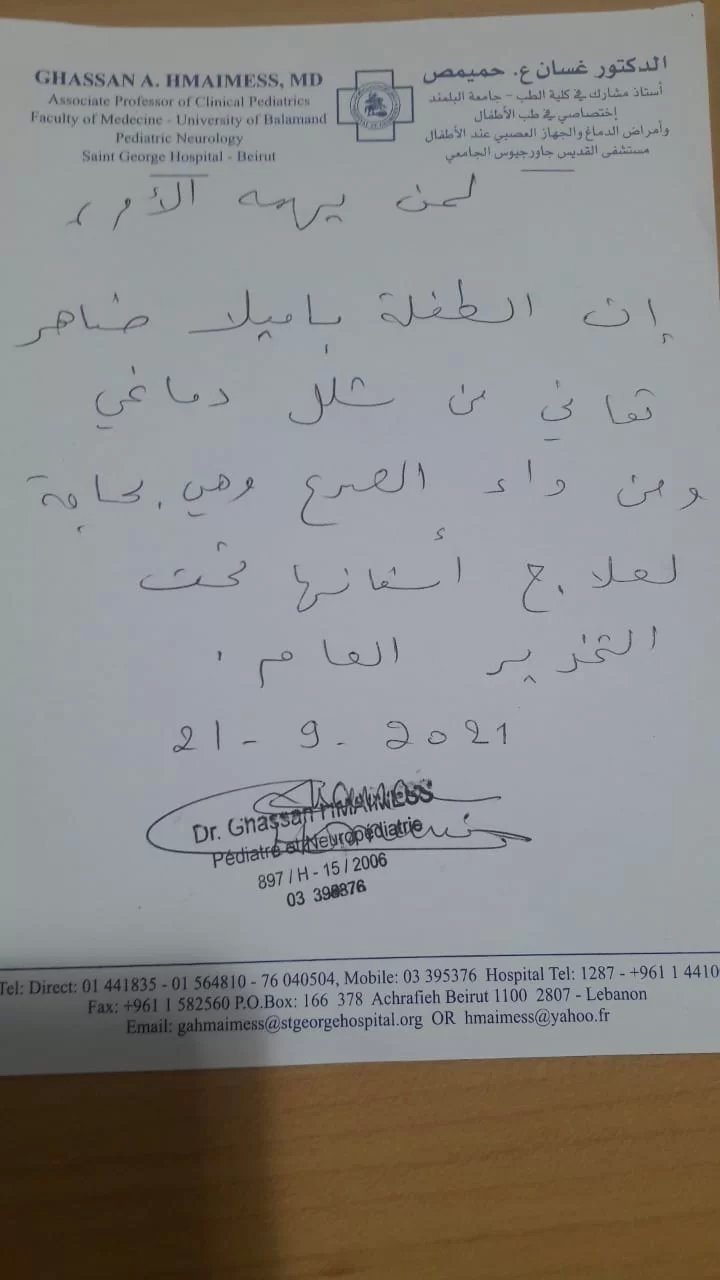 GHASSAN A. HMAIMESS, MD
Associate Professor of Clinical Pediatrics
Faculty of Medecine - University of Balamand
Pediatric Neurology
Saint George Hospital - Beirut
الدكتور غسان ع. حميمص
أستاذ مشارك في كلية الطب - جامعة البلمند
إختصاصي في طب الأطفال
وأمراض الدماغ والجهاز العصبي عند الأطفال
مستشفى القديس جاورجيوس الجامعي
لمن يهمه الأمر،
إن الطفلة باميلا ضاهر
تعاني من شلل دماغي
ومن داء الصرع وهي بحاجة
لعلاج أسنانها تحت
التخدير العام.
21 - 9 - 2021
Dr. Ghassan HMAIMESS
Pédiatre et Neuropédiatrie
897 / H - 15 / 2006
03
Tel: Direct: 01 441835 - 01 564810 - 76 040504, Mobile: 03 395376 Hospital Tel: 1287 - +961 1 4410
Fax: +961 1 582560 P.O.Box: 166 378 Achrafieh Beirut 1100 2807 - Lebanon
Email: gahmaimess@stgeorgehospital.org OR hmaimess@yahoo.fr